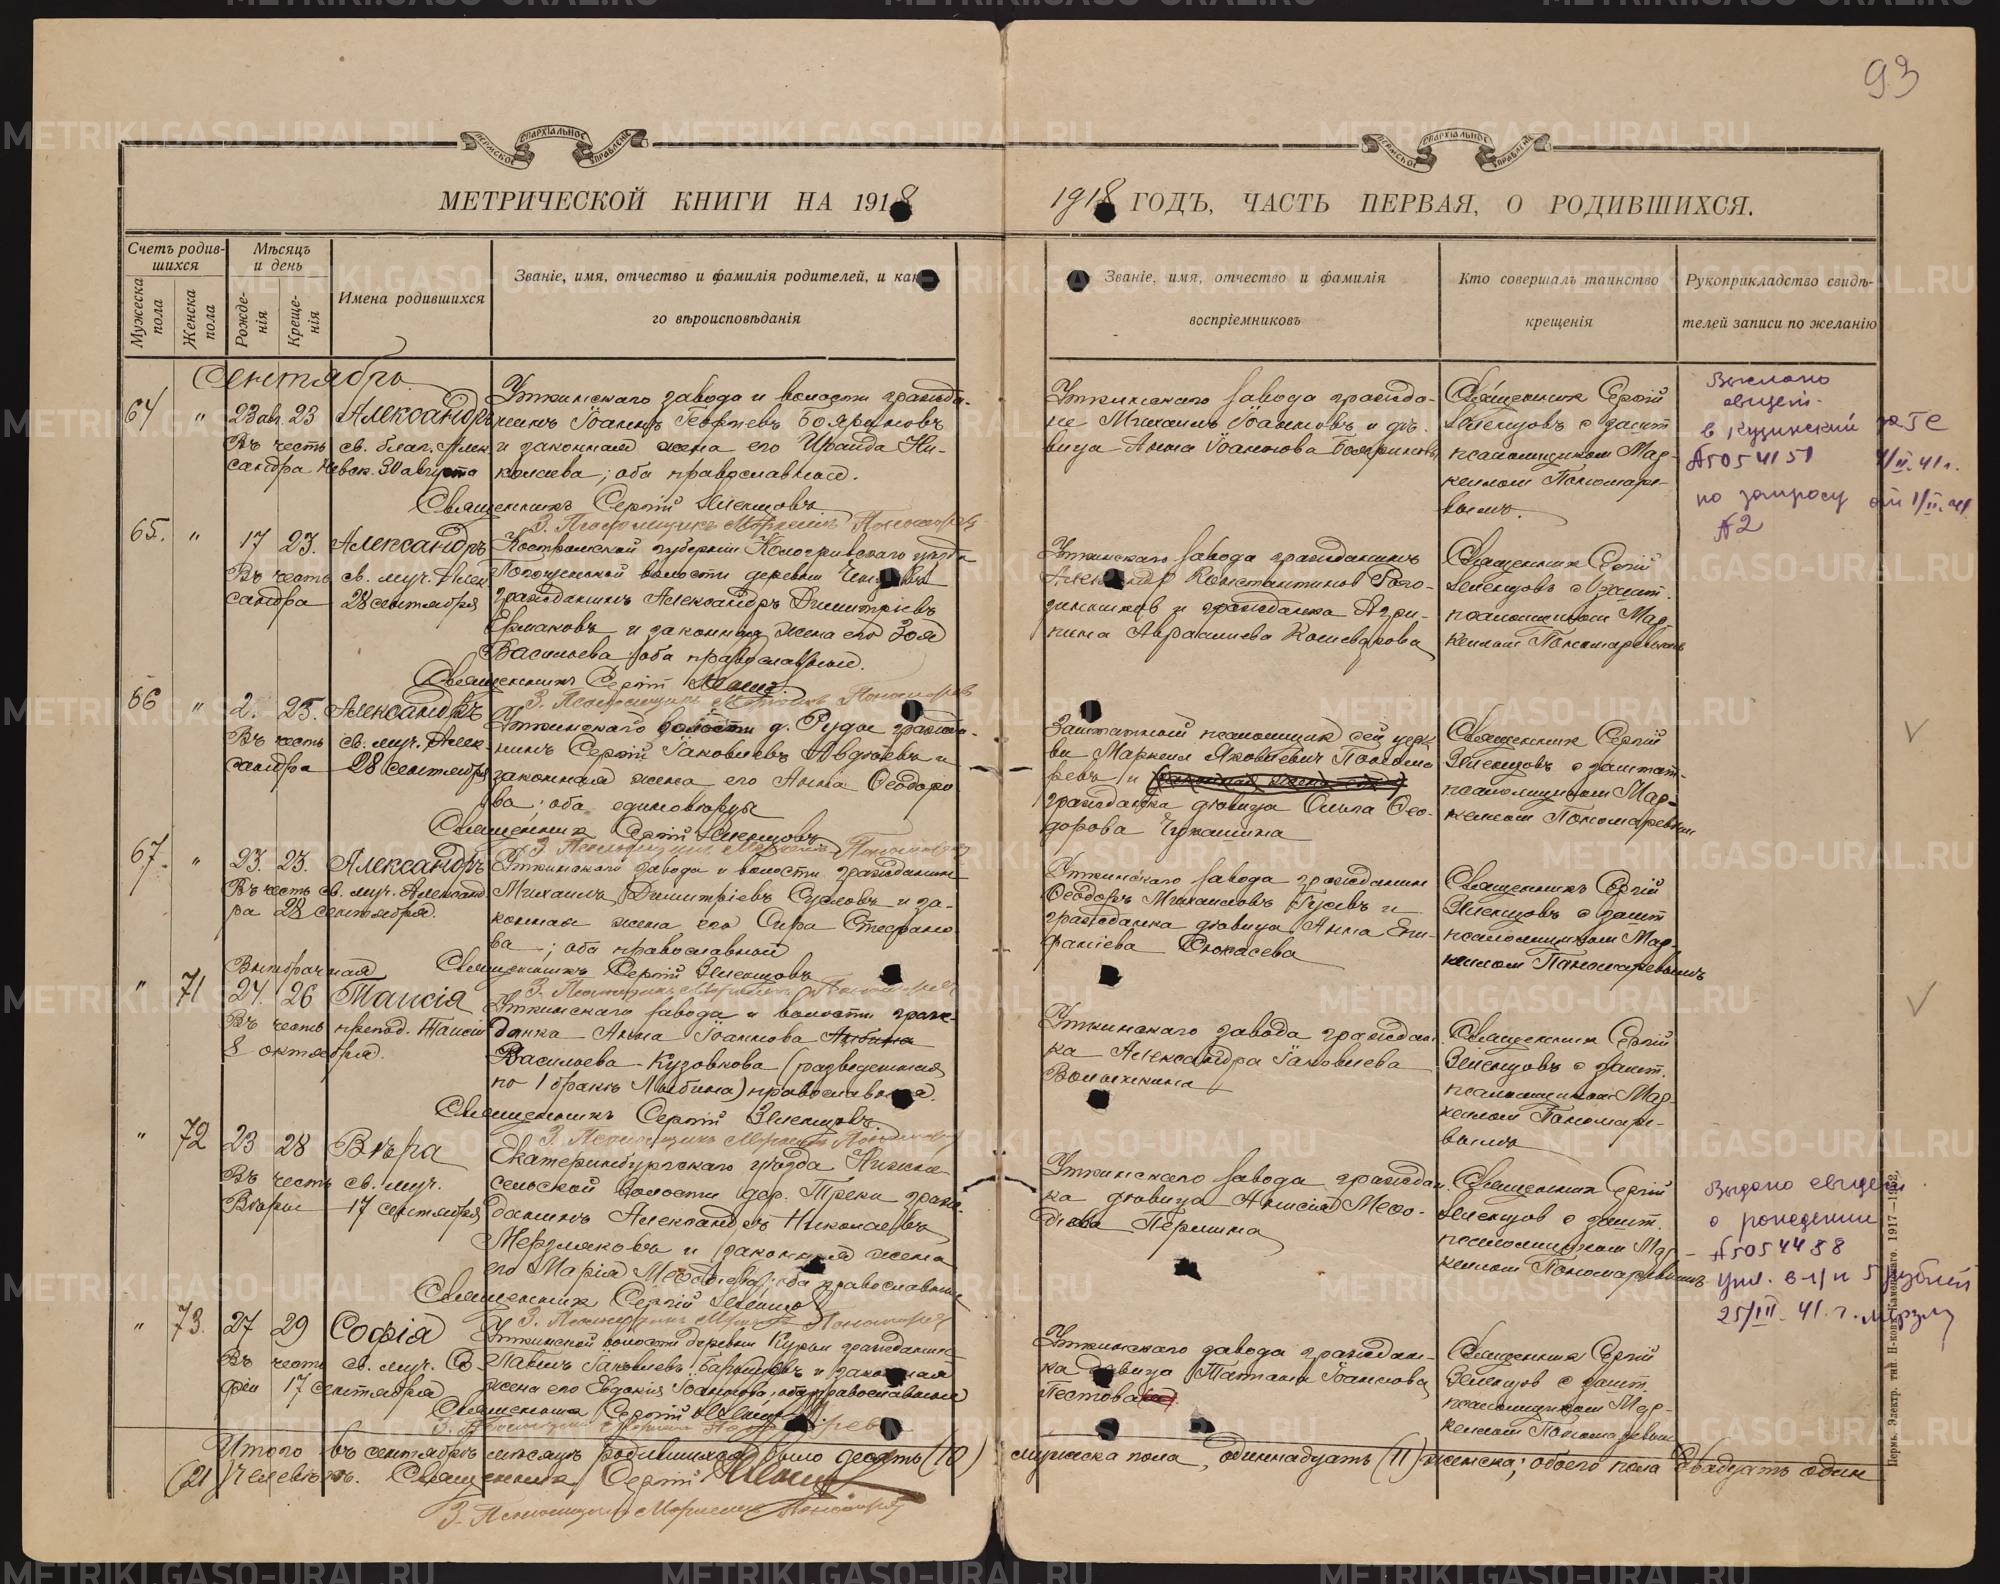 93
ПЕРМСКОЕ ЕПАРХІАЛЬНОЕ УПРАВЛЕНІЕ
ПЕРМСКОЕ ЕПАРХІАЛЬНОЕ УПРАВЛЕНІЕ
МЕТРИЧЕСКОЙ КНИГИ НА 1918
1918 ГОДЪ, ЧАСТЬ ПЕРВАЯ, О РОДИВШИХСЯ.
Счетъ родив-
шихся
Мужеска пола
Женска пола
Мѣсяцъ
и день
Рожде-
нія
Креще-
нія
Имена родившихся
Званіе, имя, отчество и фамилія родителей, и как
го вѣроисповѣданія
Званіе, имя, отчество и фамилія
воспріемниковъ
Кто совершалъ таинство
крещенія
Рукоприкладство свидѣ-
телей записи по желанію
Сентябрь
64 " 23 авг. 23 Александръ
Въ честь св. благ. Алек
сандра Невск. 30 августа
Уткинскаго завода и волости гражда-
нинъ Іоаннъ Георгіевъ Бояриновъ
и законная жена его Ираида Ни-
колаева; оба православные.
Священникъ Сергій
З. Псаломщикъ Маркеллъ Пономаревъ
Уткинскаго завода гражда-
не Михаилъ Іоанновъ и дѣ-
вица Анна Іоаннова Бояриновы
Священникъ Сергій
Зеленцовъ с зашт
псаломщикомъ Мар-
келломъ Пономаре-
вымъ.
Выслано
свидет.
в Кузинский загс
А5054151 4/II.41 г.
по запросу от 1/II.41
№2
65. " 17 23. Александръ
Въ честь св. муч. Алек
сандра 28 сентября
Костромской губерніи Кологривскаго уѣзда
волости деревни
гражданинъ Александръ Димитріевъ
Ермаковъ и законная жена его Зоя
Васильева; оба православные.
Священникъ Сергій
З. Псаломщикъ Маркеллъ Пономаревъ
Уткинскаго завода гражданинъ
Александръ Константиновъ
и гражданка Агри-
пина Авраамиева Кошеварова
Священникъ Сергій
Зеленцовъ с зашт.
псаломщикомъ Мар-
келломъ Пономаревымъ
66 " 2. 25. Александръ
Въ честь св. муч. Алек-
сандра 28 сентября
Уткинскаго волости д. Руди гражда-
нинъ Сергій Іаковлевъ Авдюевъ и
законная жена его Анна Ѳеодоро
ва; оба единовѣрцы
Священникъ Сергій Зеленцовъ
З. Псаломщикъ Маркеллъ Пономаревъ
Заштатный псаломщик сей церк
ви Маркелл Яковлевич Пономаревъ и
гражданка дѣвица Ольга Ѳео-
дорова Чукашина
Священникъ Сергій
Зеленцовъ с заштат-
псаломщикомъ Мар-
келломъ Пономаревым
67. " 23. 23. Александръ
Въ честь св. муч. Александ
ра 28 сентября.
Уткинскаго завода и волости гражданинъ
Михаилъ Димитріевъ Сусловъ и за-
конная жена его Сира Стефано
ва; оба православные
Священникъ Сергій Зеленцовъ
З. Псаломщикъ Маркеллъ Пономаревъ
Уткинскаго завода гражданинъ
Ѳеодоръ Михаиловъ Гусевъ и
гражданка дѣвица Анна Епи-
фаніева
Священникъ Сергій
Зеленцовъ с зашт
псаломщикомъ Мар-
келломъ Пономаревымъ
Внѣбрачная
" 71 24. 26 Таисія
Въ честь препод. Таисіи
8 октября.
Уткинскаго завода и волости граж-
данка Анна Іоаннова
Васильева-Кузовкова (разведенная
по 1 браку Лыбина) православная.
Священникъ Сергій Зеленцовъ.
З. Псаломщикъ Маркеллъ Пономаревъ
Уткинскаго завода граждан
ка Александра Іаковлева
Волынкина
Священникъ Сергій
Зеленцовъ с зашт.
псаломщикомъ Мар-
келломъ Пономаре-
вымъ
" 72 23 28 Вѣра
Въ честь св. муч.
Вѣры 17 сентября
Екатеринбургскаго уѣзда Нижне-
сельской волости дер. Треки граж-
данинъ Александръ Николаевъ
Мерзляковъ и законная жена
его Марія Меѳодіева; оба православные
Священникъ Сергій
З. Псаломщикъ Маркеллъ Пономаревъ
Уткинскаго завода граждан
ка дѣвица Анисія Меѳо-
діева Першина
Священникъ Сергій
Зеленцов с зашт.
псаломщиком Мар-
келломъ Пономаревымъ
Выдано свидет
о рождении
А5054488
упл. в г/п 5 рублей
25/III.41 г.
" 73. 27 29 Софія
Въ честь св. муч. Со-
фіи 17 сентября
Уткинской волости деревни Курьи гражданинъ
Павелъ Іаковлевъ и законная
жена его Евдокія Іоаннова, оба православные
Священникъ Сергій
Уткинскаго завода граждан-
ка дѣвица Татіана Іоаннова
Пестова
Священникъ Сергій
Зеленцов с зашт.
псаломщикомъ Мар-
келломъ Пономаревым
Итого въ сентябрѣ мѣсяцѣ родившихся было десять (10) мужска пола, одиннадцать (11) женска; обоего пола двадцать один
(21) человѣкъ. Священникъ Сергій
З. Псаломщикъ Маркеллъ Пономаревъ
METRIKI.GASO-URAL.RU